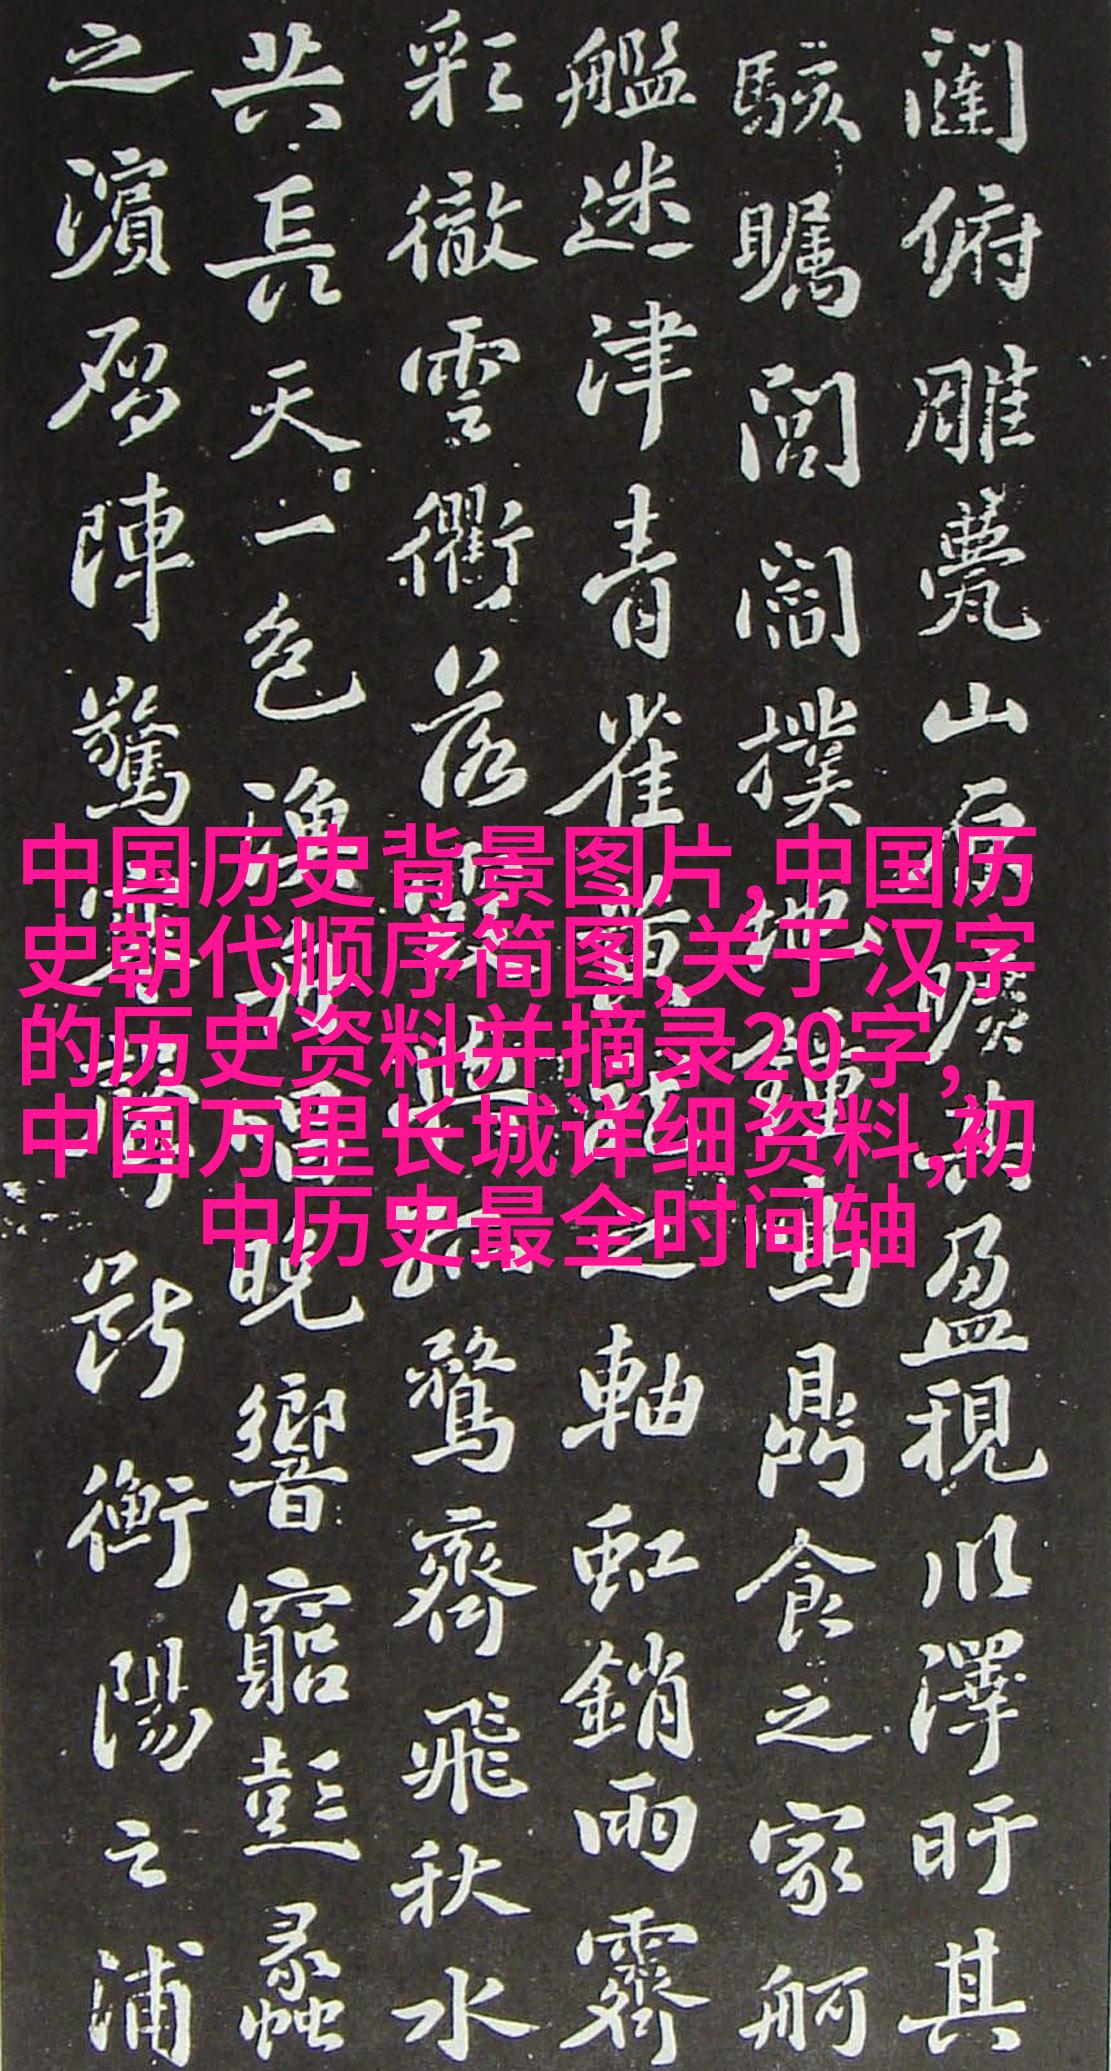 闥俯雕甍山原曠其盈視川澤盱其
駭矚閭閻撲地鐘鳴鼎食之家舸
艦迷津青雀黃龍之軸虹銷雨霽
彩徹雲衢落霞與孤鶩齊飛秋水
共長天一色漁舟唱晚響窮彭蠡
之濱鴈陣驚寒聲斷衡陽之浦
中国历史背景图片,中国历
史朝代顺序简图,关于汉字
的历史资料并摘录20字,
中国万里长城详细资料,初
中历史最全时间轴